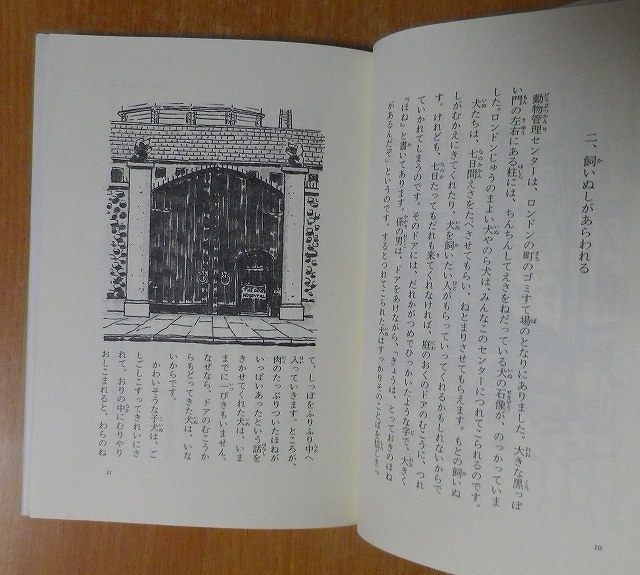 二、飼いぬしがあらわれる
動物管理センターは、ロンドンの町のゴミすて場のとなりにありました。大きな黒っぽ
い門の左右にある柱には、ちんちんしてえさをねだっている犬の石像が、のっかっていま
した。ロンドンじゅうのまよい犬やのら犬は、みんなこのセンターにつれてこられるのです。
犬たちは、七日間えさをたべさせてもらい、ねとまりさせてもらえます。もとの飼いぬ
しがむかえにきてくれたり、犬を飼いたい人がもらっていってくれるかもしれないからで
す。けれども、七日たってもだれも来てくれなければ、庭のおくのドアのむこうに、つれ
ていかれてしまうのです。そのドアには、だれかがつめでひっかいたような字で、大きく
『ほね』と書いてあります。係の男は、ドアをあけながら、「きょうは、とっておきのほね
があるんだぞ」というのです。するとつれてこられた犬はすっかりそのことばを信じきっ
20
て、しっぽをふりふり中へ
入っていきます。ところが、
肉のたっぷりついたほねが
いっぱいあったという話を
きかせてくれた犬は、いま
までに一ぴきもいません。
なぜなら、ドアのむこうか
らもどってきた犬は、いな
いからです。
かわいそうな子犬は、ご
しごしこすってきれいにさ
れて、おりの中にむりやり
おしこまれると、わらのね
21
HOSPITAL